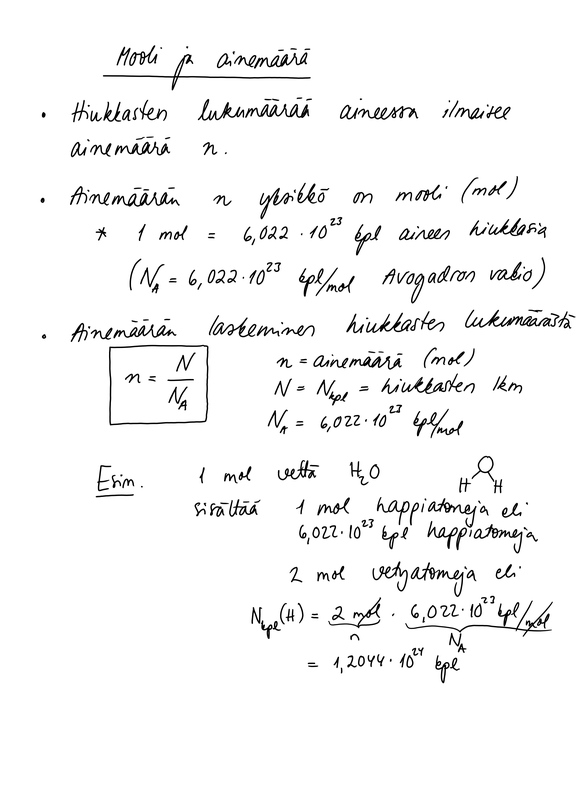 Mooli ja ainemäärä
• Hiukkasten lukumäärää aineessa ilmaisee
ainemäärä n.
• Ainemäärän n yksikkö on mooli (mol)
* 1 mol = 6,022 · 10²³ kpl aineen hiukkasia
(N_A = 6,022 · 10²³ kpl/mol Avogadron vakio)
• Ainemäärän laskeminen hiukkasten lukumäärästä
n = N / N_A
n = ainemäärä (mol)
N = N_kpl = hiukkasten lkm
N_A = 6,022 · 10²³ kpl/mol
Esim. 1 mol vettä H₂O
O
H H
sisältää 1 mol happiatomeja eli
6,022 · 10²³ kpl happiatomeja
2 mol vetyatomeja eli
N_kpl(H) = 2 mol · 6,022 · 10²³ kpl/mol
n N_A
= 1,2044 · 10²⁴ kpl